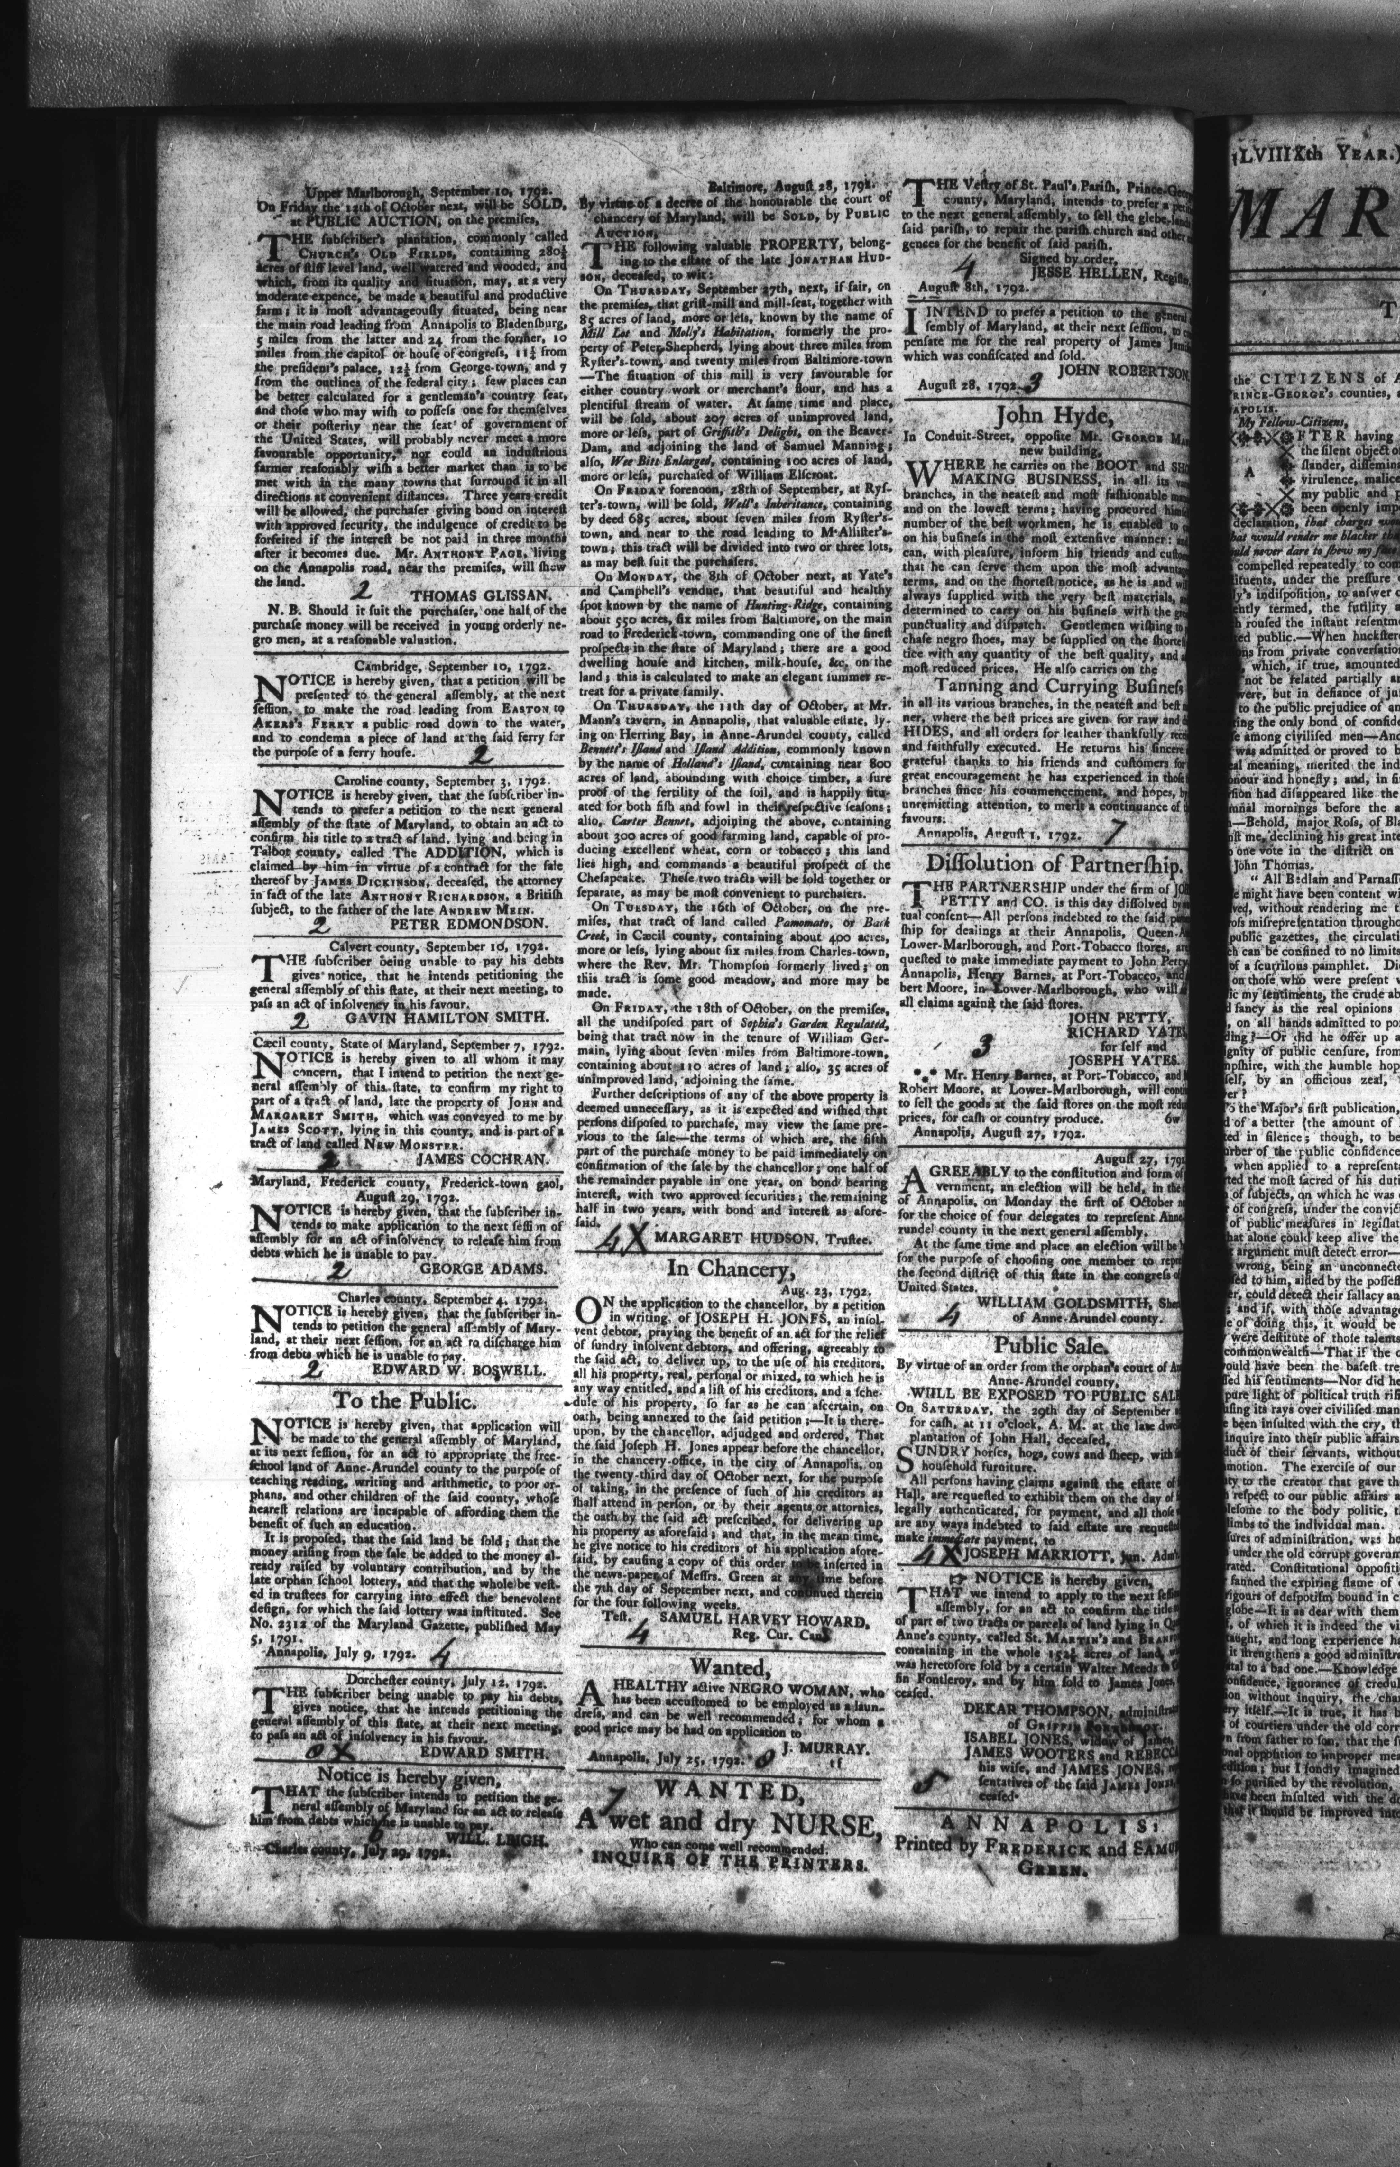 Upper Marlborough, September 10, 1792.
On Friday the 12th of October next, will be SOLD,
at PUBLIC AUCTION, on the premises,
THE subscriber's plantation, commonly called
CHURCH'S OLD FIELDS, containing 280½
acres of stiff level land, well watered and wooded, and
which, from its quality and situation, may, at a very
moderate expence, be made a beautiful and productive
farm; it is most advantageously situated, being near
the main road leading from Annapolis to Bladensburg,
5 miles from the latter and 24 from the former, 10
miles from the capitol or house of congress, 11½ from
the president's palace, 12½ from George-town, and 7
from the outlines of the federal city; few places can
be better calculated for a gentleman's country seat,
and those who may wish to possess one for themselves
or their posterity near the seat of government of
the United States, will probably never meet a more
favourable opportunity, nor could an industrious
farmer reasonably wish a better market than is to be
met with in the many towns that surround it in all
directions at convenient distances. Three years credit
will be allowed, the purchaser giving bond on interest
with approved security, the indulgence of credit to be
forfeited if the interest be not paid in three months
after it becomes due. Mr. ANTHONY PAGE, living
on the Annapolis road, near the premises, will shew
the land.
2 THOMAS GLISSAN.
N. B. Should it suit the purchaser, one half of the
purchase money will be received in young orderly ne-
gro men, at a reasonable valuation.
Cambridge, September 10, 1792.
NOTICE is hereby given, that a petition will be
presented to the general assembly, at the next
session, to make the road leading from EASTON to
AKERS'S FERRY a public road down to the water,
and to condemn a piece of land at the said ferry for
the purpose of a ferry house. 2
Caroline county, September 3, 1792.
NOTICE is hereby given, that the subscriber in-
tends to prefer a petition to the next general
assembly of the state of Maryland, to obtain an act to
confirm his title to a tract of land, lying and being in
Talbot county, called The ADDITION, which is
claimed by him in virtue of a contract for the sale
thereof by JAMES DICKINSON, deceased, the attorney
in fact of the late ANTHONY RICHARDSON, a British
subject, to the father of the late ANDREW MEIN.
2 PETER EDMONDSON.
Calvert county, September 10, 1792.
THE subscriber being unable to pay his debts
gives notice, that he intends petitioning the
general assembly of this state, at their next meeting, to
pass an act of insolvency in his favour.
2 GAVIN HAMILTON SMITH.
Cæcil county, State of Maryland, September 7, 1792.
NOTICE is hereby given to all whom it may
concern, that I intend to petition the next ge-
neral assembly of this state, to confirm my right to
part of a tract of land, late the property of JOHN and
MARGARET SMITH, which was conveyed to me by
JAMES SCOTT, lying in this county, and is part of a
tract of land called NEW MONSTER.
2 JAMES COCHRAN.
Maryland, Frederick county, Frederick-town gaol,
August 29, 1792.
NOTICE is hereby given, that the subscriber in-
tends to make application to the next session of
assembly for an act of insolvency, to release him from
debts which he is unable to pay.
2 GEORGE ADAMS.
Charles county, September 4, 1792.
NOTICE is hereby given, that the subscriber in-
tends to petition the general assembly of Mary-
land, at their next session, for an act to discharge him
from debts which he is unable to pay.
2 EDWARD W. BOSWELL.
To the Public.
NOTICE is hereby given, that application will
be made to the general assembly of Maryland,
at its next session, for an act to appropriate the free-
school land of Anne-Arundel county to the purpose of
teaching reading, writing and arithmetic, to poor or-
phans, and other children of the said county, whose
nearest relations are incapable of affording them the
benefit of such an education.
It is proposed, that the said land be sold; that the
money arising from the sale be added to the money al-
ready raised by voluntary contribution, and by the
late orphan school lottery, and that the whole be vest-
ed in trustees for carrying into effect the benevolent
design, for which the said lottery was instituted. See
No. 2312 of the Maryland Gazette, published May
5, 1791.
Annapolis, July 9, 1792. 4
Dorchester county, July 12, 1792.
THE subscriber being unable to pay his debts,
gives notice, that he intends petitioning the
general assembly of this state, at their next meeting,
to pass an act of insolvency in his favour.
8X EDWARD SMITH.
Notice is hereby given,
THAT the subscriber intends to petition the ge-
neral assembly of Maryland for an act to release
him from debts which he is unable to pay.
6 WILL. LEIGH.
Charles county, July 29, 1792.
Baltimore, August 28, 1792.
By virtue of a decree of the honourable the court of
chancery of Maryland, will be SOLD, by PUBLIC
AUCTION,
THE following valuable PROPERTY, belong-
ing to the estate of the late JONATHAN HUD-
SON, deceased, to wit:
On THURSDAY, September 27th, next, if fair, on
the premises, that grist-mill and mill-seat, together with
85 acres of land, more or less, known by the name of
Mill Lot and Molly's Habitation, formerly the pro-
perty of Peter Shepherd, lying about three miles from
Ryster's-town, and twenty miles from Baltimore-town
—The situation of this mill is very favourable for
either country work or merchant's flour, and has a
plentiful stream of water. At same time and place,
will be sold, about 207 acres of unimproved land,
more or less, part of Griffith's Delight, on the Beaver-
Dam, and adjoining the land of Samuel Manning;
also, Wee Bitt Enlarged, containing 100 acres of land,
more or less, purchased of William Elserost.
On FRIDAY forenoon, 28th of September, at Rys-
ter's-town, will be sold, Well's Inheritance, containing
by deed 685 acres, about seven miles from Ryster's-
town, and near to the road leading to M'Allister's-
town; this tract will be divided into two or three lots,
as may best suit the purchasers.
On MONDAY, the 8th of October next, at Yate's
and Campbell's vendue, that beautiful and healthy
spot known by the name of Hunting-Ridge, containing
about 550 acres, six miles from Baltimore, on the main
road to Frederick-town, commanding one of the finest
prospects in the state of Maryland; there are a good
dwelling house and kitchen, milk-house, &c. on the
land; this is calculated to make an elegant summer re-
treat for a private family.
On THURSDAY, the 11th day of October, at Mr.
Mann's tavern, in Annapolis, that valuable estate, ly-
ing on Herring Bay, in Anne-Arundel county, called
Bennett's Island and Island Addition, commonly known
by the name of Holland's Island, containing near 800
acres of land, abounding with choice timber, a sure
proof of the fertility of the soil, and is happily situ-
ated for both fish and fowl in their respective seasons;
also, Carter Bennet, adjoining the above, containing
about 300 acres of good farming land, capable of pro-
ducing excellent wheat, corn or tobacco; this land
lies high, and commands a beautiful prospect of the
Chesapeake. These two tracts will be sold together or
separate, as may be most convenient to purchasers.
On TUESDAY, the 16th of October, on the pre-
mises, that tract of land called Pamomato, or Back
Creek, in Cæcil county, containing about 400 acres,
more or less, lying about six miles from Charles-town,
where the Rev. Mr. Thompson formerly lived; on
this tract is some good meadow, and more may be
made.
On FRIDAY, the 18th of October, on the premises,
all the undisposed part of Sophia's Garden Regulated,
being that tract now in the tenure of William Ger-
main, lying about seven miles from Baltimore-town,
containing about 110 acres of land; also, 35 acres of
unimproved land, adjoining the same.
Further descriptions of any of the above property is
deemed unnecessary, as it is expected and wished that
persons disposed to purchase, may view the same pre-
vious to the sale—the terms of which are, the fifth
part of the purchase money to be paid immediately on
confirmation of the sale by the chancellor; one half of
the remainder payable in one year, on bond bearing
interest, with two approved securities; the remaining
half in two years, with bond and interest as afore-
said.
4X MARGARET HUDSON, Trustee.
In Chancery,
Aug. 23, 1792.
ON the application to the chancellor, by a petition
in writing, of JOSEPH H. JONES, an insol-
vent debtor, praying the benefit of an act for the relief
of sundry insolvent debtors, and offering, agreeably to
the said act, to deliver up, to the use of his creditors,
all his property, real, personal or mixed, to which he is
any way entitled, and a list of his creditors, and a sche-
dule of his property, so far as he can ascertain, on
oath, being annexed to the said petition;—It is there-
upon, by the chancellor, adjudged and ordered, That
the said Joseph H. Jones appear before the chancellor,
in the chancery-office, in the city of Annapolis, on
the twenty-third day of October next, for the purpose
of taking, in the presence of such of his creditors as
shall attend in person, or by their agents or attornies,
the oath by the said act prescribed, for delivering up
his property as aforesaid; and that, in the mean time,
he give notice to his creditors of his application afore-
said, by causing a copy of this order to be inserted in
the news-paper of Messrs. Green at any time before
the 7th day of September next, and continued therein
for the four following weeks.
Test. SAMUEL HARVEY HOWARD,
4 Reg. Cur. Can.
Wanted,
A HEALTHY active NEGRO WOMAN, who
has been accustomed to be employed as a laun-
dress, and can be well recommended; for whom a
good price may be had on application to
J. MURRAY.
Annapolis, July 25, 1792. 8 tf
WANTED,
7
A wet and dry NURSE,
Who can come well recommended.
INQUIRE OF THE PRINTERS.
THE Vestry of St. Paul's Parish, Prince-
county, Maryland, intends to prefer a
to the next general assembly, to sell the glebe lands
said parish, to repair the parish church and other
gences for the benefit of said parish.
Signed by order,
4 JESSE HELLEN,
August 8th, 1792.
I INTEND to prefer a petition to the general
sembly of Maryland, at their next session, to
pensate me for the real property of James
which was confiscated and sold.
JOHN ROBERTSON.
August 28, 1792. 3
John Hyde,
In Conduit-Street, opposite Mr. GEORGE
new building,
WHERE he carries on the BOOT and
MAKING BUSINESS, in all its
branches, in the neatest and most fashionable
and on the lowest terms; having procured
number of the best workmen, he is enabled to
on his business in the most extensive manner:
can, with pleasure, inform his friends and
that he can serve them upon the most
terms, and on the shortest notice, as he is and
always supplied with the very best materials,
determined to carry on his business with the
punctuality and dispatch. Gentlemen wishing to
chase negro shoes, may be supplied on the
tice with any quantity of the best quality, and
most reduced prices. He also carries on the
Tanning and Currying Business
in all its various branches, in the neatest and best
ner, where the best prices are given for raw and
HIDES, and all orders for leather thankfully
and faithfully executed. He returns his sincere
grateful thanks to his friends and customers for
great encouragement he has experienced in those
branches since his commencement, and hopes, by
unremitting attention, to merit a continuance of
favours.
Annapolis, August 1, 1792. 7
Dissolution of Partnership.
THE PARTNERSHIP under the firm of
PETTY and CO. is this day dissolved by
tual consent—All persons indebted to the said
ship for dealings at their Annapolis,
Lower-Marlborough, and Port-Tobacco stores, are
quested to make immediate payment to John Petty
Annapolis, Henry Barnes, at Port-Tobacco, and
bert Moore, in Lower-Marlborough, who will
all claims against the said stores.
JOHN PETTY,
RICHARD YATES
for self and
3 JOSEPH YATES.
*⁎* Mr. Henry Barnes, at Port-Tobacco, and
Robert Moore, at Lower-Marlborough, will
to sell the goods at the said stores on the most
prices, for cash or country produce. 6w
Annapolis, August 27, 1792.
August 27,
AGREEABLY to the constitution and form of
vernment, an election will be held, in the
of Annapolis, on Monday the first of October
for the choice of four delegates to represent
rundel county in the next general assembly.
At the same time and place an election will be
for the purpose of choosing one member to
the second district of this state in the congress of
United States.
4 WILLIAM GOLDSMITH,
of Anne-Arundel county.
Public Sale.
By virtue of an order from the orphan's court of
Anne-Arundel county,
WILL BE EXPOSED TO PUBLIC SALE
On SATURDAY, the 29th day of September
for cash, at 11 o'clock, A. M. at the late
plantation of John Hall, deceased,
SUNDRY horses, hogs, cows and sheep, with
household furniture.
All persons having claims against the estate of
Hall, are requested to exhibit them on the day of
legally authenticated, for payment, and all those
are any ways indebted to said estate are
make immediate payment, to
4X JOSEPH MARRIOTT, jun.
NOTICE is hereby given,
THAT we intend to apply to the next
assembly, for an act to confirm the title
of part of two tracts or parcels of land lying in
Anne's county, called St. MARTIN'S and
containing in the whole 152½ acres of land,
was heretofore sold by a certain Walter Meeds
fin Fontleroy, and by him sold to James Jones
ceased.
DEKAR THOMPSON,
of GRIFFIN
ISABEL JONES, widow of James,
JAMES WOOTERS and
his wife, and JAMES JONES,
5 sentatives of the said JAMES JONES,
ceased.
ANNAPOLIS:
Printed by FREDERICK and
GREEN.
YEAR.)
MAR
T
the CITIZENS of
counties,
My Fellow-Citizens,
AFTER having
the silent object of
slander,
virulence, malice
my public and
been openly
declaration, that charges
that would render me blacker
never dare to shew my
compelled repeatedly to
under the pressure
indisposition, to answer
termed, the futility
roused the instant
public.—When
from private conversation
which, if true, amounted
not be related partially
were, but in defiance of
to the public prejudice of
the only bond of
among civilised men—And
was admitted or proved to
meaning, merited the
and honesty; and, in
had disappeared like the
mornings before the
—Behold, major Ross, of
me, declining his great
one vote in the district on
John Thomas.
" All Bedlam and
might have been content
without rendering me
misrepresentation
public gazettes, the
can be confined to no limits
of a scurrilous pamphlet.
on those who were present
my sentiments, the crude
fancy as the real opinions
on all hands admitted to
Or did he offer up a
of public censure, from
with the humble
by an officious zeal,
the Major's first publication,
of a better (the amount of
in silence; though, to be
of the public confidence
when applied to a
the most sacred of his
of subjects, on which he was
of congress, under the
of public measures in
that alone could keep alive the
argument must detect error—
wrong, being an
to him, aided by the
could detect their fallacy
and if, with those
of doing this, it would be
were destitute of those talents
commonwealth—That if the
have been the basest
his sentiments—Nor did he
pure light of political truth
its rays over civilised
been insulted with the cry,
inquire into their public affairs
of their servants, without
The exercise of our
to the creator that gave
respect to our public affairs
to the body politic,
limbs to the individual man.
of administration, was
under the old corrupt
Constitutional
fanned the expiring flame of
of despotism bound in
globe—It is as dear with them
of which it is indeed the
taught, and long experience
it strengthens a good
to a bad one.—Knowledge
confidence, ignorance of
without inquiry, the
itself.—It is true, it has
of courtiers under the old
from father to son, that the
opposition to improper
but I fondly imagined
so purified by the revolution,
have been insulted with the
that it should be improved